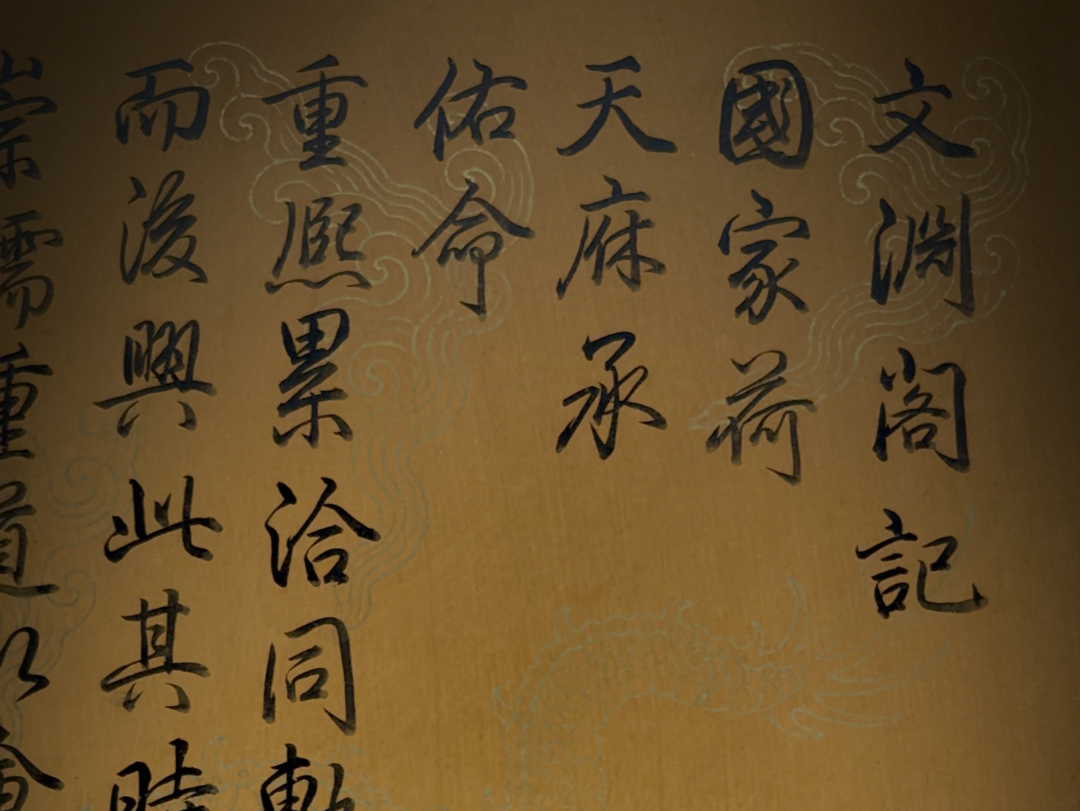 文淵閣記
國家荷
天庥承
佑命
重熙累洽同軌
而後興此其時
崇儒重道以會